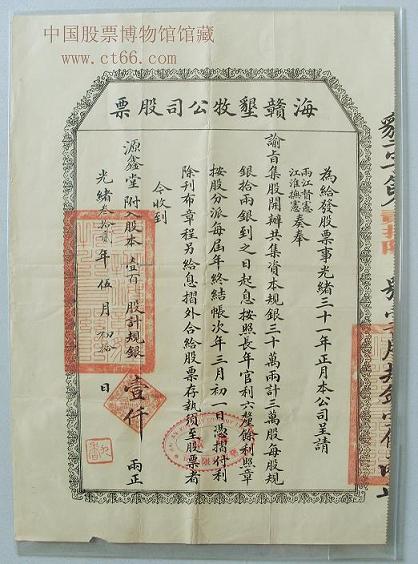 中国股票博物馆馆藏
www.ct66.com
海贛墾牧公司股票
為給發股票事光緒三十一年正月本公司呈請
兩江督憲
江淮撫憲
奏奉
諭旨集股開辦共集資本規銀三十萬兩計三萬股每股規
銀拾兩銀到之日起息按照長年官利六釐餘利照章
按股分派每屆年終結帳次年三月初一日憑摺付利
除刊布章程另給息摺外合給股票存執須至股票者
今收到
源鑫堂附入股本壹百股計規銀壹仟兩正
光緒叁拾貳年伍月初拾日